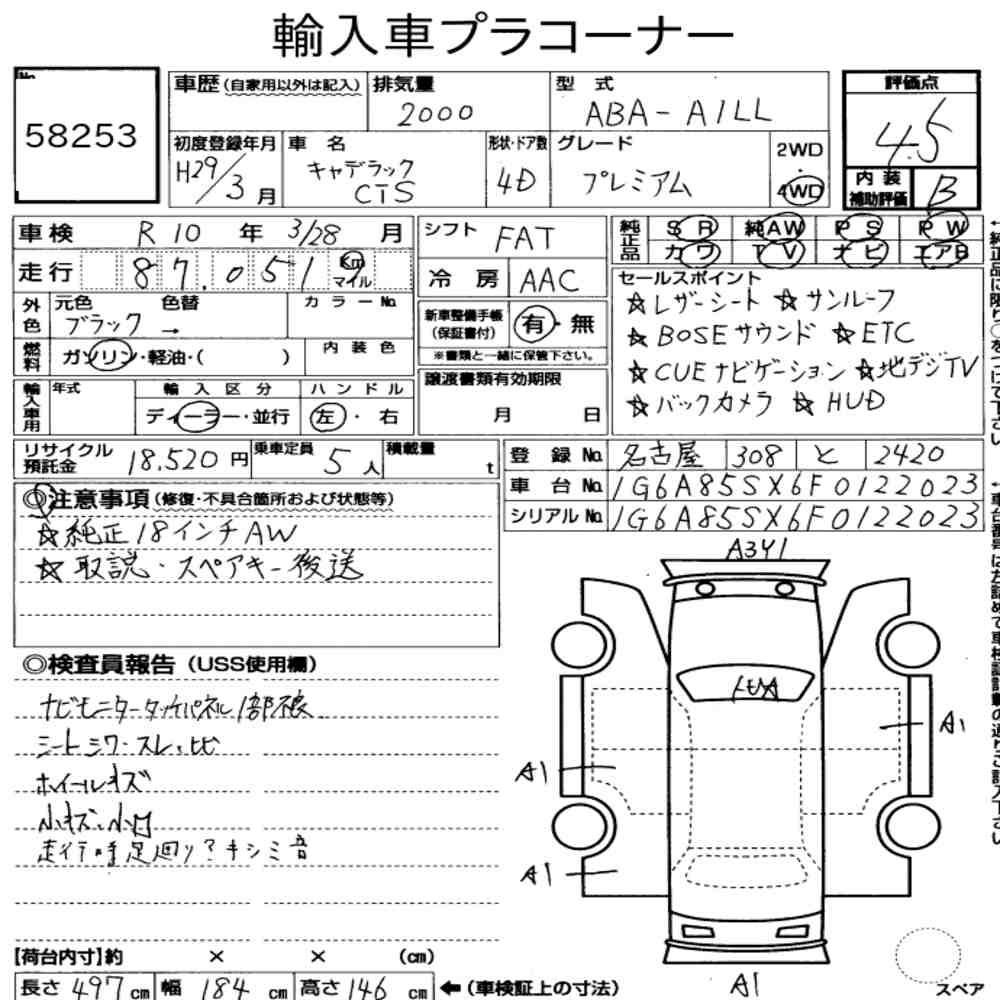 輸入車プラコーナー
No.
58253
車歴(自家用以外は記入)
排気量
2000
型 式
ABA-A1LL
評価点
4.5
初度登録年月
H29/3月
車 名
キャデラック
CTS
形状・ドア数
4D
グレード
プレミアム
2WD
4WD
内装
補助評価
B
車検 R10 年 3/28 月
走行 87.051 Km マイル
シフト FAT
冷房 AAC
純正品
SR 純AW PS PW
カワ TV ナビ エアB
外色
元色 色替
ブラック →
カラーNo.
新車整備手帳
(保証書付)
有・無
※書類と一緒に保管下さい。
燃料
ガソリン・軽油・( )
内装色
セールスポイント
☆レザーシート ☆サンルーフ
☆BOSEサウンド ☆ETC
☆CUEナビゲーション ☆地デジTV
☆バックカメラ ☆HUD
輸入車用
年式
輸入区分
ディーラー・並行
ハンドル
左・右
譲渡書類有効期限
月 日
リサイクル
預託金
18.520円
乗車定員
5人
積載量
t
登録No. 名古屋 308 と 2420
車台No. 1G6A85SX6F0122023
シリアルNo. 1G6A85SX6F0122023
◎注意事項(修復・不具合箇所および状態等)
☆純正18インチAW
☆取説・スペアキー後送
◎検査員報告(USS使用欄)
ナビモニタータッチパネル1部浪
シートシワ・スレ・ヒビ
ホイールキズ
小キズ・小凹
走行時足廻り?キシミ音
A3Y1
A1
A1
A1
A1
スペア
【荷台内寸】約 × × (cm)
長さ 497 cm 幅 184 cm 高さ 146 cm ←(車検証上の寸法)